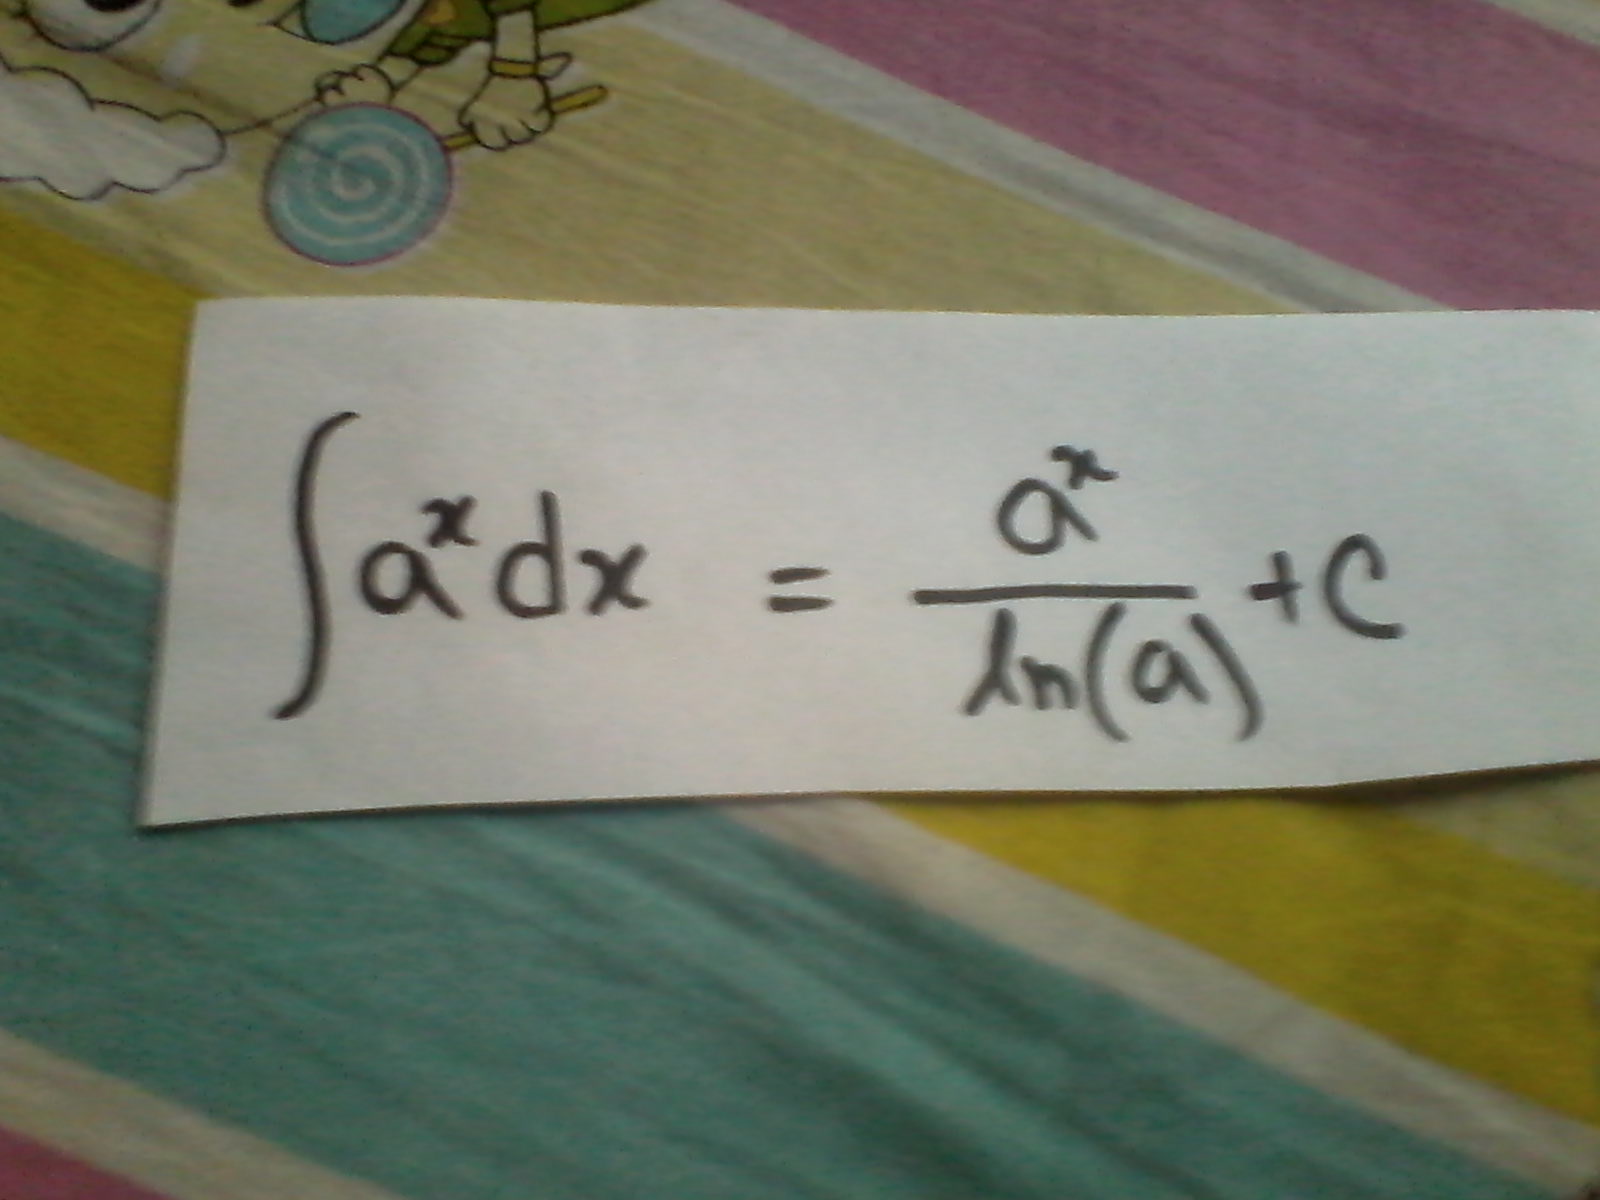 ∫aˣdx = aˣ/ln(a) + C